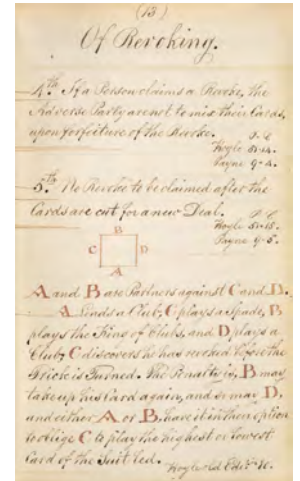 (13)
Of Revoking.
4.th If a Person claims a Revoke, the
Adverse Party are not to mix their Cards,
upon forfeiture of the Revoke.
Hoyle 51-14.
Payne 9-4.
5.th No Revoke to be claimed after the
Cards are cut for a new Deal.
Hoyle 51-15.
Payne 9-5.
B
C D
A
A and B are Partners against C and D.
A Leads a Club, C plays a Spade, B
plays the King of Clubs, and D plays a
Club, C discovers he has revoked before the
Trick is Turned. The Penalty is, B may
take up his Card again, and so may D,
and either A or B, have it in their option
to oblige C to play the highest or lowest
Card of the Suit led.
Hoyle old Edit.n